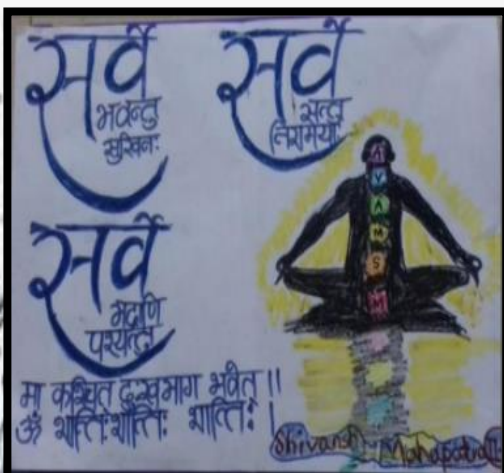 सर्वे
भवन्तु
सुखिनः
सर्वे
सन्तु
निरामया
सर्वे
भद्राणि
पश्यन्तु
मा कश्चित् दुःखभाग भवेत् !!
ॐ शान्तिः शान्तिः शान्तिः !
A
Y
A
M
S
M
Shivansh Mahapatra